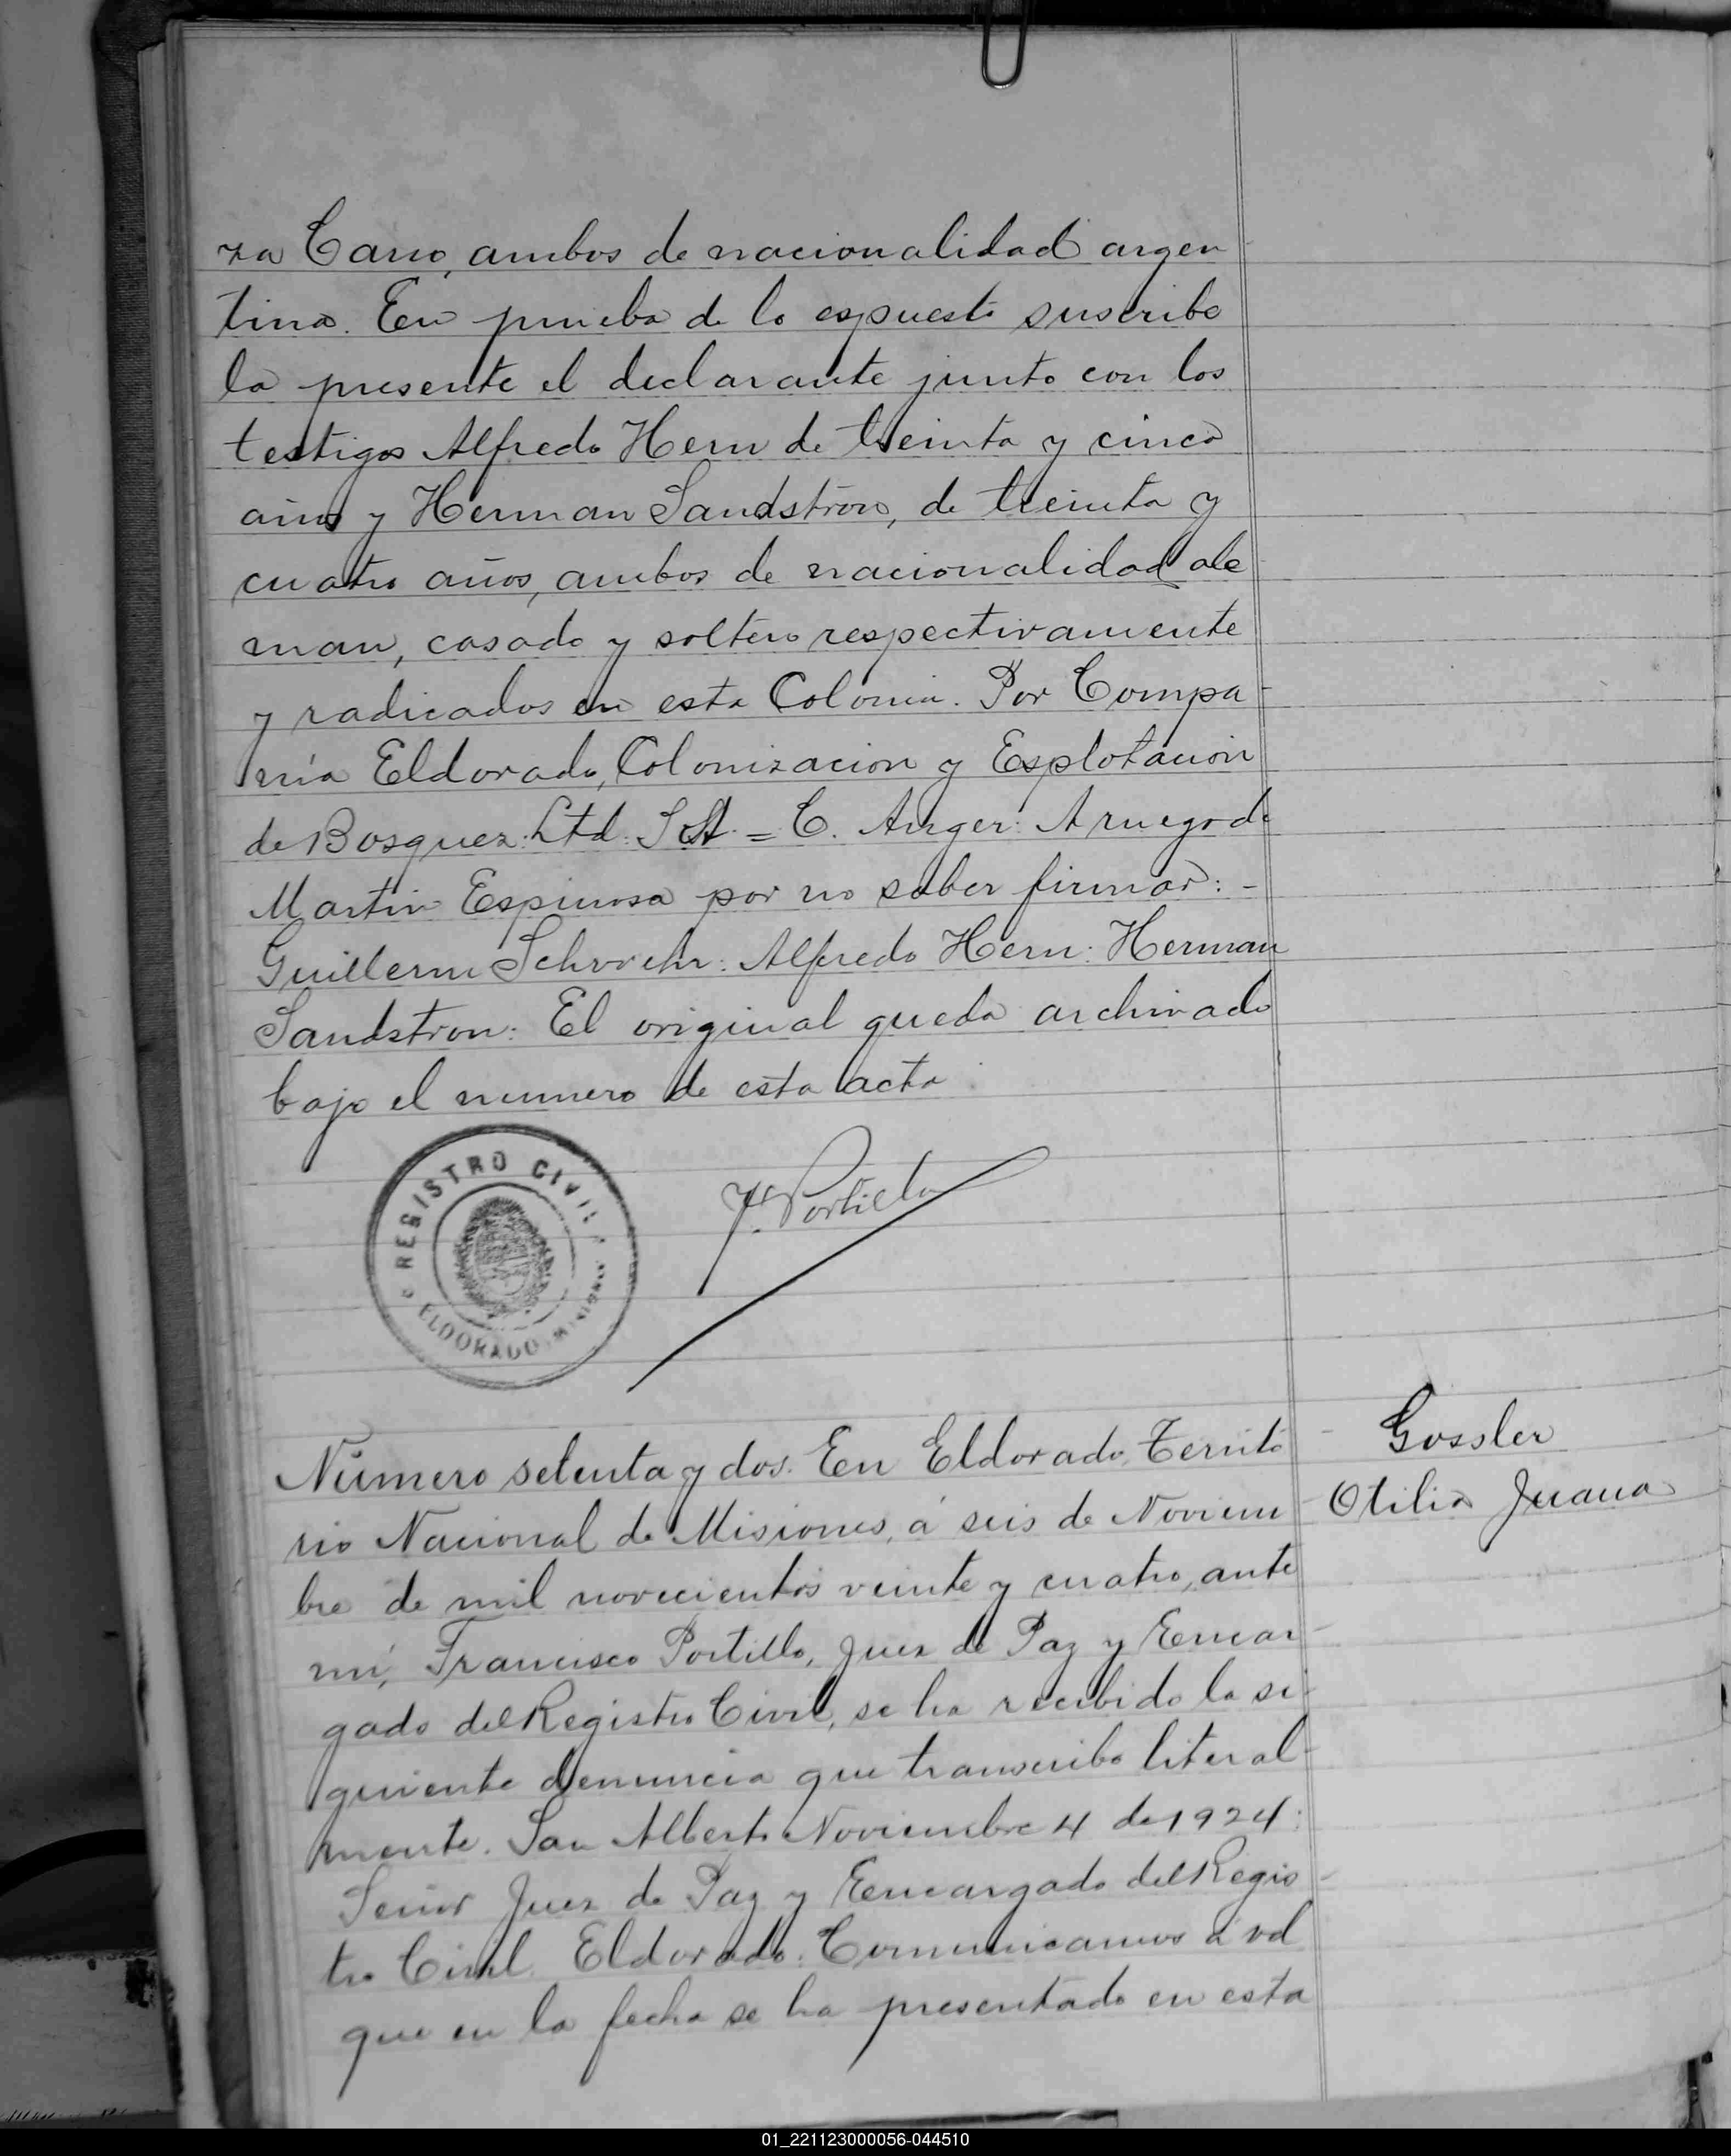 za Cano, ambos de nacionalidad argen
tina. En prueba de lo espuesto suscribe
la presente el declarante junto con los
testigos Alfredo Hern de treinta y cinco
años y Herman Sandstron, de treinta y
cuatro años, ambos de nacionalidad ale
man, casado y soltero respectivamente
y radicados en esta Colonia. Por Compa-
nía Eldorado, Colonizacion y Esplotación
de Bosques. Ltd. S.A. = C. Anger: A ruego de
Martin Espinosa por no saber firmar: -
Guillermo Alfredo Hern: Herman
Sandstron: El original queda archivado
bajo el numero de esta acta
REGISTRO CIVIL
ELDORADO MISIONES
F. Portillo
Número setenta y dos. En Eldorado, Territo
rio Nacional de Misiones, á seis de Noviem
bre de mil novecientos veinte y cuatro, ante
mí, Francisco Portillo, Juez de Paz y Encar-
gado del Registro Civil, se ha recibido la si-
guiente denuncia que transcribo literal-
mente. San Alberto Noviembre 4 de 1924:
Señor Juez de Paz y Encargado del Regis-
tro Civil. Eldorado: Comunicamos á vd
que en la fecha se ha presentado en esta
Gossler
Otilia Juana
01_221123000056-044510